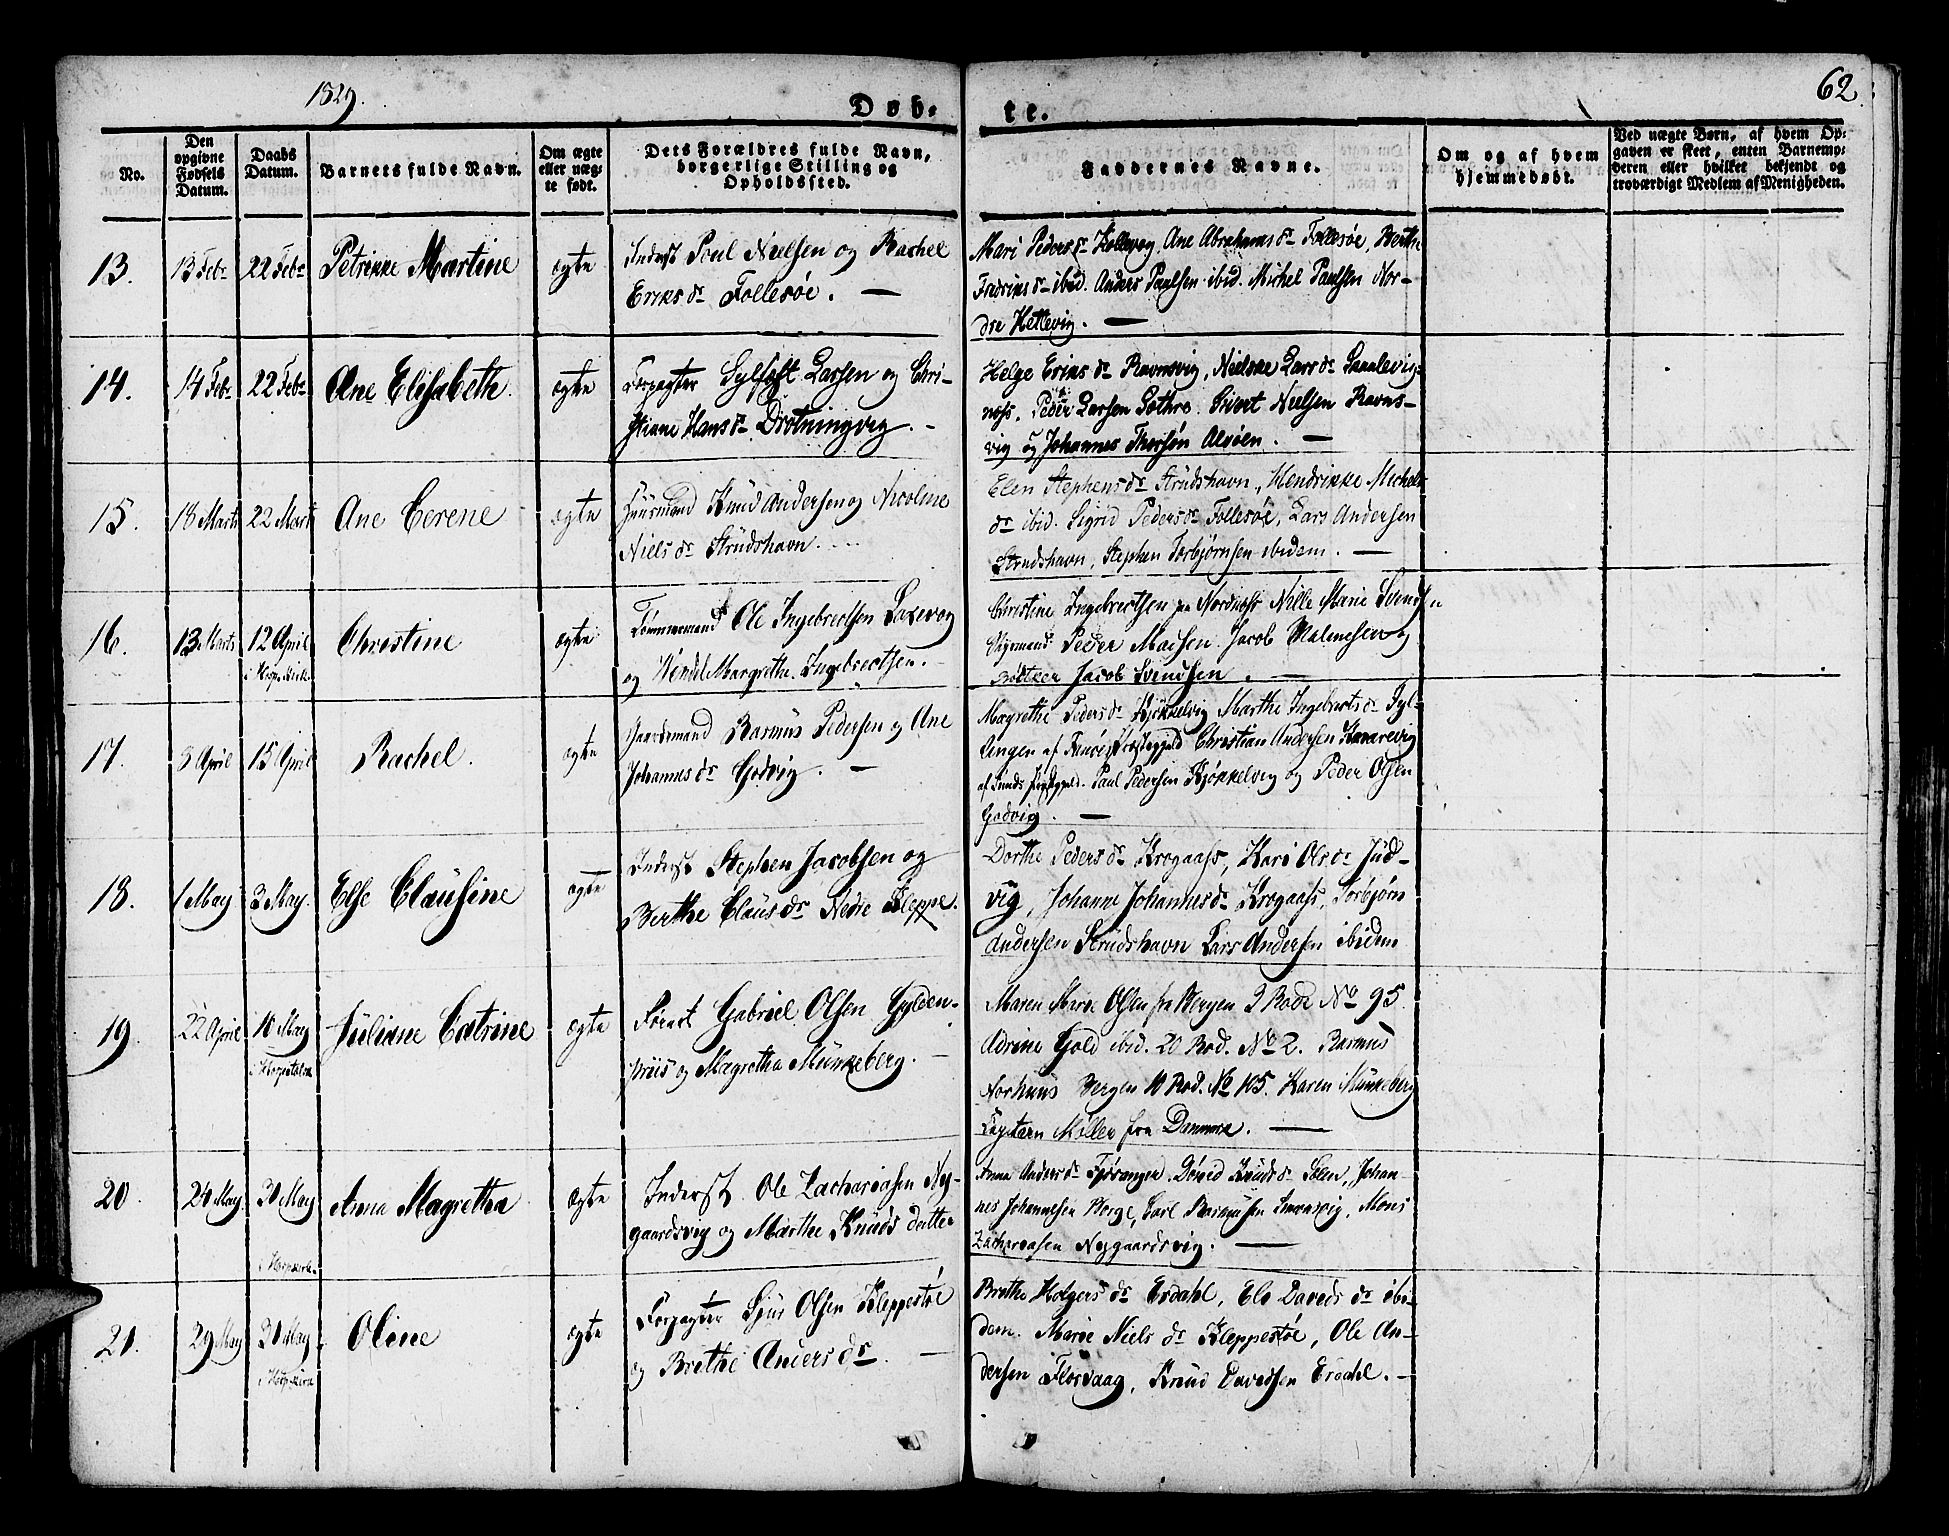 1829.
Døb-
te.
62
No.
Den opgivne Fødsels Datum.
Daabs Datum.
Barnets fulde Navn.
Om ægte eller næg-te født.
Dets Forældres fulde Navn, borgerlige Stilling og Opholdssted.
Faddernes Navne.
Om og af hvem hjemmedøbt.
Ved uægte Børn, af hvem Op-
gaven er skeet, enten Barnemo-
deren eller hvilket bekjendt og
troværdigt Medlem af Menigheden.
13.
13 Febr
22 Febr
Petrikke Martine
ægte
Inderst Poul Nielsen og Rachel
Eriks dr Follesøe. —
Mari Peders dr Kollevog, Ane Abrahams dr Follesøe, Berthe
Fredriks dr ibid. Anders Paulsen ibid. Michel Paulsen Nor-
dre Hettevig. —
14.
14 Febr
22 Febr
Ane Elisabeth.
ægte
Forpagter Sylfest Larsen og Chri-
stiane Hans dr Drotningvig. -
Helge Eriks dr Ravnsvig, Nielske Lars dr
Peder Larsen Gothre. Sivert Nielsen Ravns-
vig og Johannes Alvøen. —
15.
18 Marts
22 Marts
Ane Cerene
ægte
Huusmand Knud Andersen og Nicoline
Niels dr Strudshavn. ...
Elen Stephens dr Strudshavn, Hendrikke Michels
dr ibid. Sigrid Peders dr Follesøe, Lars Andersen
Strudshavn, Stephen Torbjørnsen ibidem. —
16.
13 Marts
12 April
i Hosp. Kirk.
Christine
ægte
Tømmermand Ole Ingebrectsen Laxevog
og Wendel Margrethe Ingebrectsen. -
Christine Ingebrectsen paa Nordnæss Nille Marie Svendsen
Peder Madsen. Jacob og
Bødtker Jacob Svendsen. —
17.
3 April
15 April
Rachel.
ægte
Gaardmand Rasmus Pedersen og Ane
Johannes dr Godvig. —
Magrethe Peders dr Kjøkkelvig Marthe Ingebrets dr
af Præstegjeld Christian Andersen
af Sunds Præstegjeld. Paul Pedersen Kjøkkelvig og Peder Olsen
Godvig. —
18.
1 May
3 May.
Else Clausine
ægte
Inderst Stephen Jacobsen og
Berthe Claus dr Nedre Kleppe.
Dorthe Peders dr Krogaass, Kari Ols dr Jud-
vig, Johanne Johannes dr Krogaass, Torbjørn
Andersen Strudshavn Lars Andersen ibidem
19.
22 April
10 May
i Hospitalskir
Juliane Catrine
ægte
Gabriel Olsen Gylden-
priis og Magretha Munkeberg. —
Maren Marie Olsen fra Bergen 2 Rode No 95.
Adrine Gold ibid. 20 Rod. No 2. Rasmus
Aarhuus Bergen 10 Rod. No 105. Karen Munkeberg
Møller fra Danmark. —
20.
20 May.
30 May
i Hospkirk.
Anna Magretha
ægte
Inderst Ole Zachariasen Ny-
gaardsvig og Marthe Knuds datter
Anna Anders dr Fjøsanger. Knuds dr Johan-
nes Johannesen Carl Rasmusen Mons
Zachariasen Nygaardsvig. —
21.
29 May
30 May
i Hospkirk
Oline
ægte
Forpagter Sjur Olsen Kleppestøe
og Brethe Anders dr. —
Brethe Holgers dr Erdahl, Eli Davids dr ibi-
dem. Marie Niels dr Kleppestøe, Ole An-
dersen Florvaag, Knud Davidsen Erdahl. -